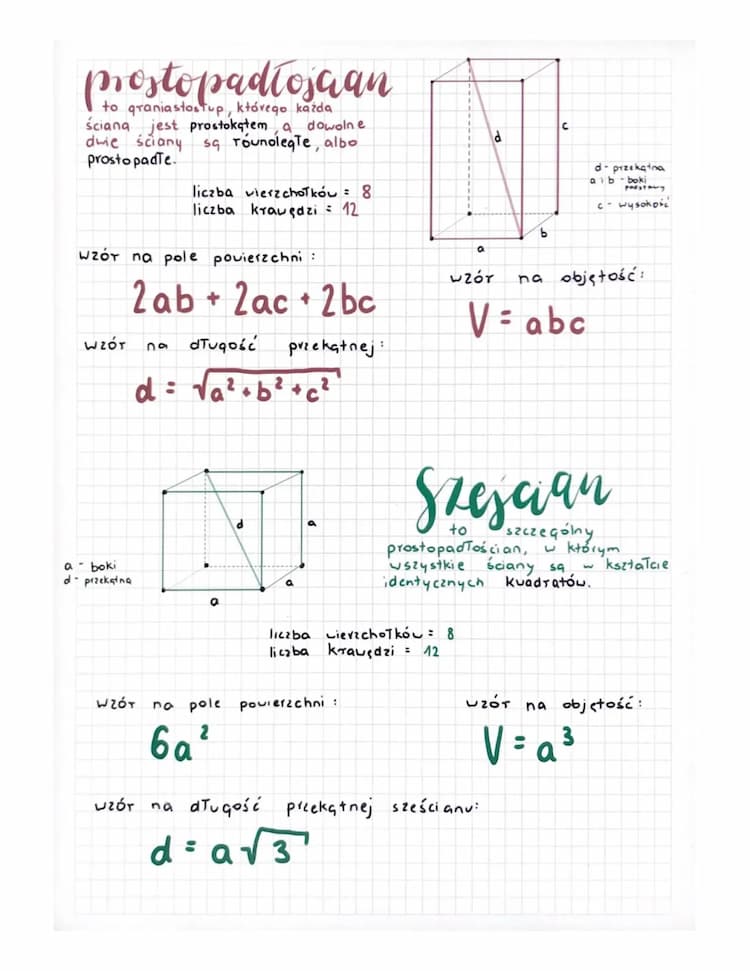 prostopadłościan
to graniastosłup, którego każda
ścianą jest prostokątem, a dowolne
dwie ściany są równoległe, albo
prostopadłe.
liczba wierzchołków = 8
liczba krawędzi = 12
d
c
b
a
d - przekątna
a i b - boki
podstawy
c - wysokość
wzór na pole powierzchni :
2ab + 2ac + 2bc
wzór na objętość:
V = abc
wzór na długość przekątnej:
d = √a² + b² + c²
d
a
a
a
a - boki
d - przekątna
Sześcian
to szczególny
prostopadłościan, w którym
wszystkie ściany są w kształcie
identycznych kwadratów.
liczba wierzchołków = 8
liczba krawędzi = 12
wzór na pole powierzchni :
6a²
wzór na objętość:
V = a³
wzór na długość przekątnej sześcianu:
d = a√3